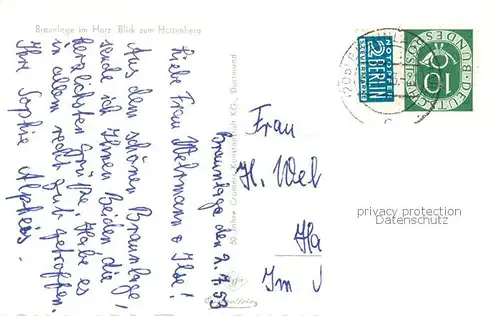 Braunlage im Harz. Blick zum Hüttenberg
Braunlage den 2.7.53
Liebe Frau Wehrmann & Ilse!
Aus dem schönen Braunlage
sende ich Ihnen Beiden die
herzlichsten Grüße. Habe es
in allem recht gut getroffen.
Ihre Sophie
50 Jahre Kunstanstalt KG., Dortmund
NOTOPFER
2 BERLIN
STEUERMARKE
DEUTSCHE BUNDESPOST
10
Frau
H. Weh
Ha
Im
privacy protection
Datenschutz